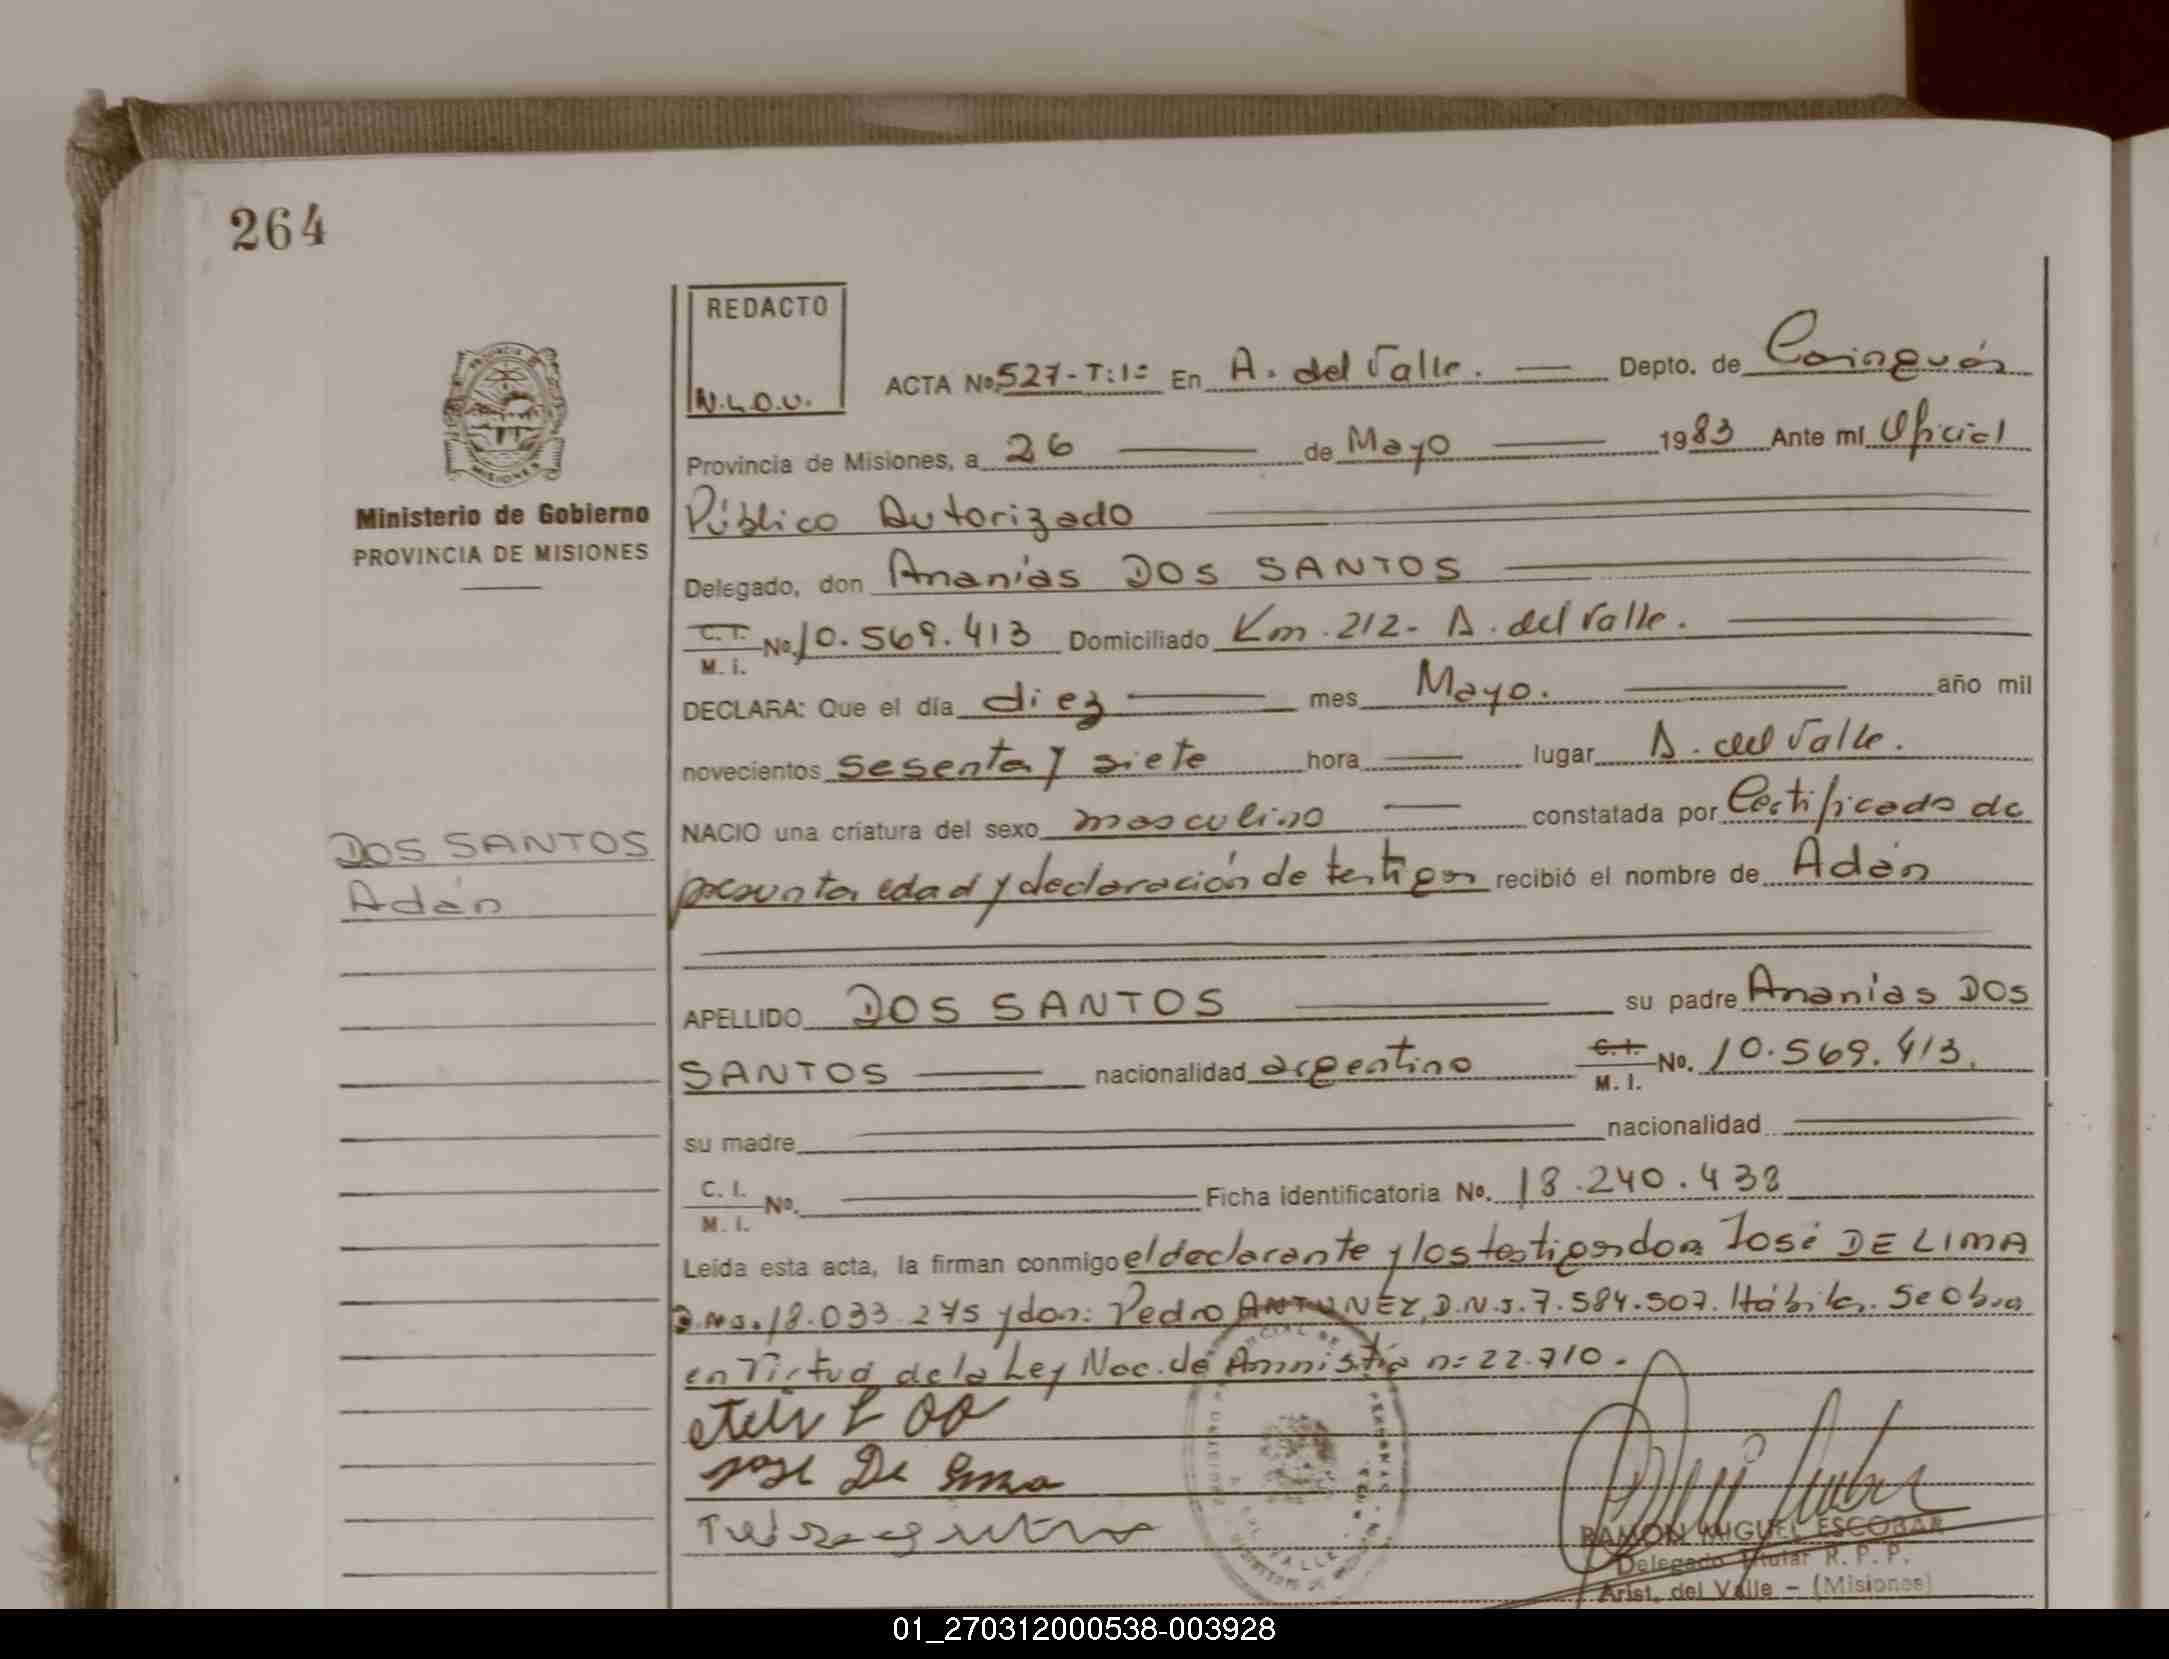 264
REDACTO
N.L.O.U.
ACTA No. 527-T:1º En A. del Valle. Depto. de Cainguás
Provincia de Misiones, a 26 de Mayo 1983 Ante mí Oficial
Público Autorizado
Delegado, don Ananías DOS SANTOS
C. I. M. I. No. 10.569.413 Domiciliado Km. 212- A. del Valle.
DECLARA: Que el día diez mes Mayo. año mil
novecientos sesenta y siete hora lugar A. del Valle.
NACIO una criatura del sexo masculino constatada por Certificado de
presunta edad y declaración de testigos recibió el nombre de Adán
APELLIDO DOS SANTOS su padre Ananías DOS
SANTOS nacionalidad argentino C. I. M. I. No. 10.569.413.
su madre nacionalidad
C. I. M. I. No. Ficha identificatoria No. 18.240.438
Leída esta acta, la firman conmigo el declarante y los testigos don José DE LIMA
D.N.I. 18.033.275 y don: Pedro ANTUNEZ, D.N.I. 7.584.507. Hábiles. Se obra
en virtud de la Ley Nac. de Amnistía nº 22.710.
José De Lima
RAMON MIGUEL ESCOBAR
Delegado Titular R. P. P.
Arist. del Valle - (Misiones)
PROVINCIA DE MISIONES
Ministerio de Gobierno
PROVINCIA DE MISIONES
DOS SANTOS
Adán
01_270312000538-003928